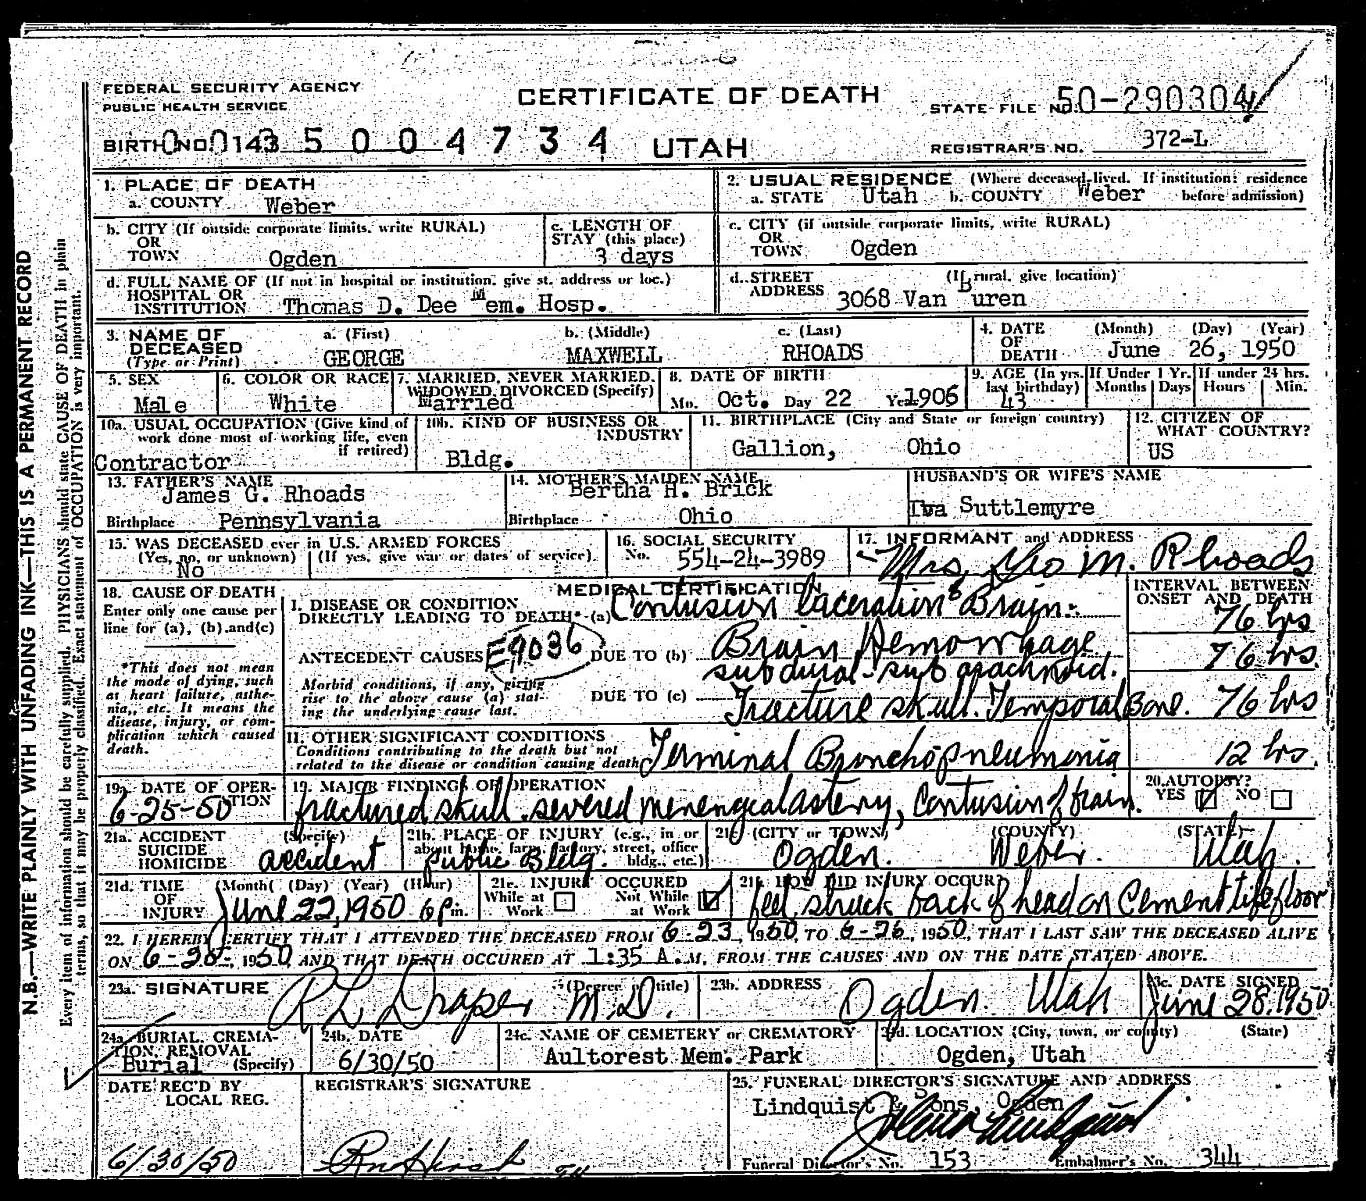 FEDERAL SECURITY AGENCY
PUBLIC HEALTH SERVICE
CERTIFICATE OF DEATH
STATE FILE NO. 50-290304
BIRTH NO. 0143 5 0 0 4 7 3 4 UTAH
REGISTRAR'S NO. 372-L
1. PLACE OF DEATH
a. COUNTY Weber
2. USUAL RESIDENCE (Where deceased lived. If institution: residence before admission)
a. STATE Utah b. COUNTY Weber
b. CITY (If outside corporate limits, write RURAL) OR TOWN Ogden
c. LENGTH OF STAY (this place) 3 days
c. CITY (if outside corporate limits, write RURAL) OR TOWN Ogden
d. FULL NAME OF (If not in hospital or institution, give st. address or loc.) HOSPITAL OR INSTITUTION Thomas D. Dee Mem. Hosp.
d. STREET ADDRESS (If rural, give location) 3068 Van Buren
3. NAME OF DECEASED (Type or Print)
a. (First) GEORGE b. (Middle) MAXWELL c. (Last) RHOADS
4. DATE OF DEATH (Month) (Day) (Year) June 26, 1950
5. SEX Male
6. COLOR OR RACE White
7. MARRIED, NEVER MARRIED, WIDOWED, DIVORCED (Specify) Married
8. DATE OF BIRTH Mo. Oct. Day 22 Year 1906
9. AGE (In yrs. last birthday) 43 If Under 1 Yr. Months Days If under 24 hrs. Hours Min.
10a. USUAL OCCUPATION (Give kind of work done most of working life, even if retired) Contractor
10b. KIND OF BUSINESS OR INDUSTRY Bldg.
11. BIRTHPLACE (City and State or foreign country) Gallion, Ohio
12. CITIZEN OF WHAT COUNTRY? US
13. FATHER'S NAME James G. Rhoads
Birthplace Pennsylvania
14. MOTHER'S MAIDEN NAME Bertha H. Brick
Birthplace Ohio
HUSBAND'S OR WIFE'S NAME
Iva Suttlemyre
15. WAS DECEASED ever in U.S. ARMED FORCES
(Yes, no, or unknown) (If yes, give war or dates of service) No
16. SOCIAL SECURITY No. 554-24-3989
17. INFORMANT and ADDRESS
Mrs. Geo M. Rhoads
18. CAUSE OF DEATH
Enter only one cause per line for (a), (b) and (c)
*This does not mean the mode of dying, such as heart failure, asthenia, etc. It means the disease, injury, or complication which caused death.
MEDICAL CERTIFICATION
INTERVAL BETWEEN ONSET AND DEATH
I. DISEASE OR CONDITION DIRECTLY LEADING TO DEATH* (a) Contusion & laceration Brain. 76 hrs
ANTECEDENT CAUSES E9036 DUE TO (b) Brain Hemorrhage subdural-subarachnoid. 76 hrs.
Morbid conditions, if any, giving rise to the above cause (a) stating the underlying cause last.
DUE TO (c) Fracture skull. Temporal Bone. 76 hrs
II. OTHER SIGNIFICANT CONDITIONS
Conditions contributing to the death but not related to the disease or condition causing death Terminal Bronchopneumonia 12 hrs.
19a. DATE OF OPERATION 6-25-50
19. MAJOR FINDINGS OF OPERATION fractured skull. severed menengeal astery, Contusion of brain.
20. AUTOPSY? YES ☑ NO ☐
21a. ACCIDENT SUICIDE HOMICIDE (Specify) accident
21b. PLACE OF INJURY (e.g., in or about home, farm, factory, street, office bldg., etc.) public Bldg.
21c. (CITY or TOWN) (COUNTY) (STATE) Ogden. Weber. Utah.
21d. TIME OF INJURY (Month) (Day) (Year) (Hour) June 22, 1950 6 pm.
21e. INJURY OCCURED While at Work ☐ Not While at Work ☑
21f. HOW DID INJURY OCCUR? fell struck back of head on Cement tile floor
22. I HEREBY CERTIFY THAT I ATTENDED THE DECEASED FROM 6-23, 1950, TO 6-26, 1950, THAT I LAST SAW THE DECEASED ALIVE
ON 6-26-, 1950, AND THAT DEATH OCCURED AT 1:35 A.M. FROM THE CAUSES AND ON THE DATE STATED ABOVE.
23a. SIGNATURE (Degree or title) R L Draper M.D.
23b. ADDRESS Ogden Utah
23c. DATE SIGNED June 28, 1950
24a. BURIAL, CREMATION, REMOVAL (Specify) Burial
24b. DATE 6/30/50
24c. NAME OF CEMETERY or CREMATORY Aultorest Mem. Park
24d. LOCATION (City, town, or county) (State) Ogden, Utah
DATE REC'D BY LOCAL REG. 6/30/50
REGISTRAR'S SIGNATURE
25. FUNERAL DIRECTOR'S SIGNATURE AND ADDRESS
Lindquist & Sons, Ogden
Funeral Director's No. 153 Embalmer's No. 344
N.B.—WRITE PLAINLY WITH UNFADING INK—THIS IS A PERMANENT RECORD
Every item of information should be carefully supplied. PHYSICIANS should state CAUSE OF DEATH in plain terms, so that it may be properly classified. Exact statement of OCCUPATION is very important.